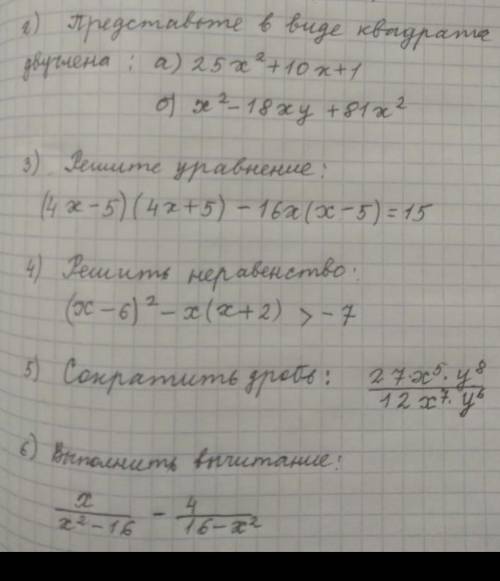 2) Представьте в виде квадрата
двучлена: а) 25x²+10x+1
б) x²-18xy+81x²
3) Решите уравнение:
(4x-5)(4x+5)-16x(x-5)=15
4) Решить неравенство:
(x-6)²-x(x+2) >-7
5) Сократить дробь: 27·x⁵·y⁸
12x⁷·y⁶
6) Выполнить вычитание:
x/(x²-16) - 4/(16-x²)